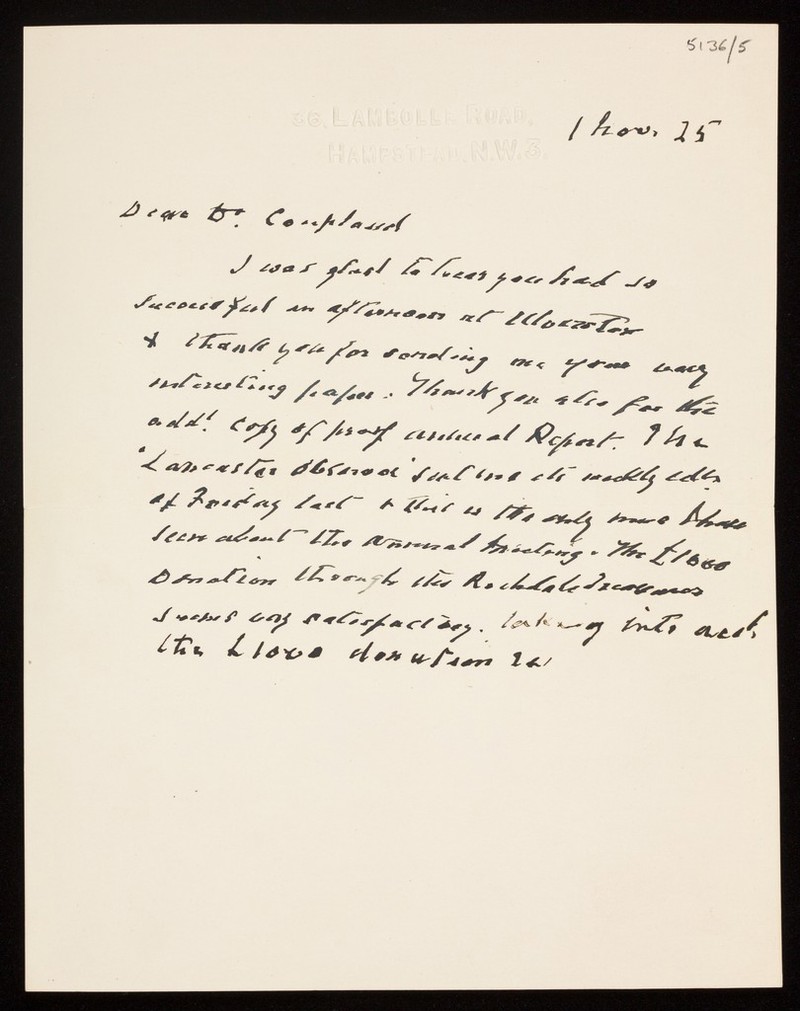 5136/5
36, LAMBOLLE ROAD,
HAMPSTEAD, N.W.3.
1 Nov. 25
Dear Dr. Coupland
I was glad to hear you had so
successful an afternoon at Ulverston
& thank you for sending me your very
interesting paper. Thank you also for the
addl. copy of proof annual Report. The
'Lancaster Observer' sent me its weekly edtn
of Friday last & this is the only news I have
seen about the Annual Meeting. The £1000
Donation through the Rochdale
seems very satisfactory. taking into acct.
the £1000 donation